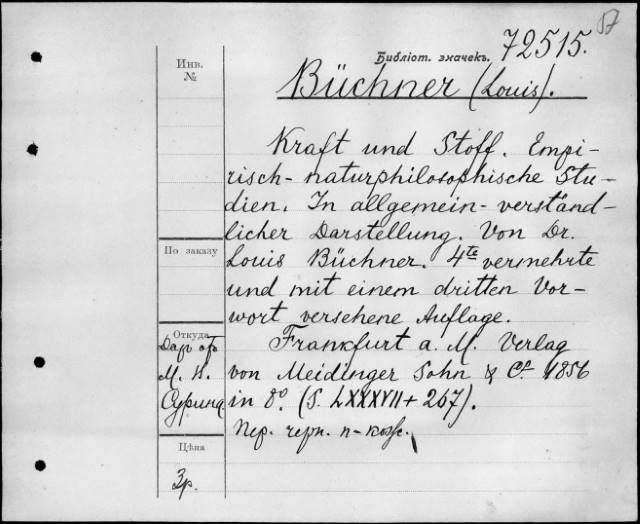 Библіот. значекъ. 72515.
Инв. №
Büchner (Louis).
Kraft und Stoff. Empi-
risch-naturphilosophische Stu-
dien. In allgemein-verständ-
licher Darstellung. Von Dr.
По заказу
Louis Büchner. 4te vermehrte
und mit einem dritten Vor-
wort versehene Auflage.
Откуда
Frankfurt a. M. Verlag
Даръ отъ
von Meidinger Sohn & Co 1856
М. Н.
in 8o. (S. LXXXVII + 267).
Пер. черн. п-кож.
Цѣна
3р.